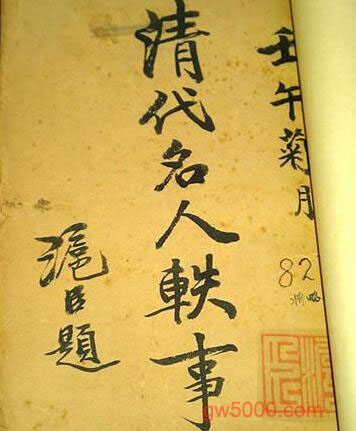 壬午菊月
清代名人軼事
滬臣題
82
gw5000.com